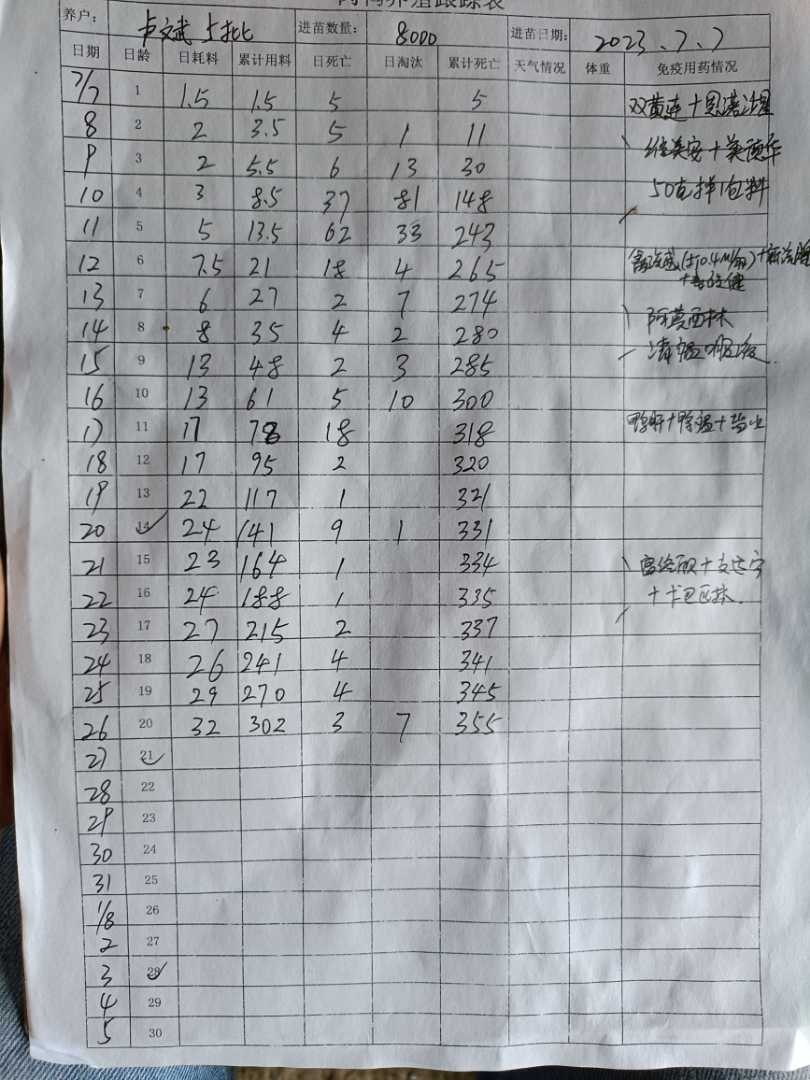 养户: 卢文斌 上批 进苗数量: 8000 进苗日期: 2023.7.7
日期 日龄 日耗料 累计用料 日死亡 日淘汰 累计死亡 天气情况 体重 免疫用药情况
7/7 1 1.5 1.5 5 5 双黄连+恩诺沙星
8 2 2 3.5 5 1 11
9 3 2 5.5 6 13 30
10 4 3 8.5 37 81 148 50克拌1包料
11 5 5 13.5 62 33 243
12 6 7.5 21 18 4 265
13 7 6 27 2 7 274
14 8 8 35 4 2 280 阿莫西林
15 9 13 48 2 3 285
16 10 13 61 5 10 300
17 11 17 78 18 318
18 12 17 95 2 320
19 13 22 117 1 321
20 14 24 141 9 1 331
21 15 23 164 1 334
22 16 24 188 1 335
23 17 27 215 2 337
24 18 26 241 4 341
25 19 29 270 4 345
26 20 32 302 3 7 355
27 21
28 22
29 23
30 24
31 25
1/8 26
2 27
3 28
4 29
5 30